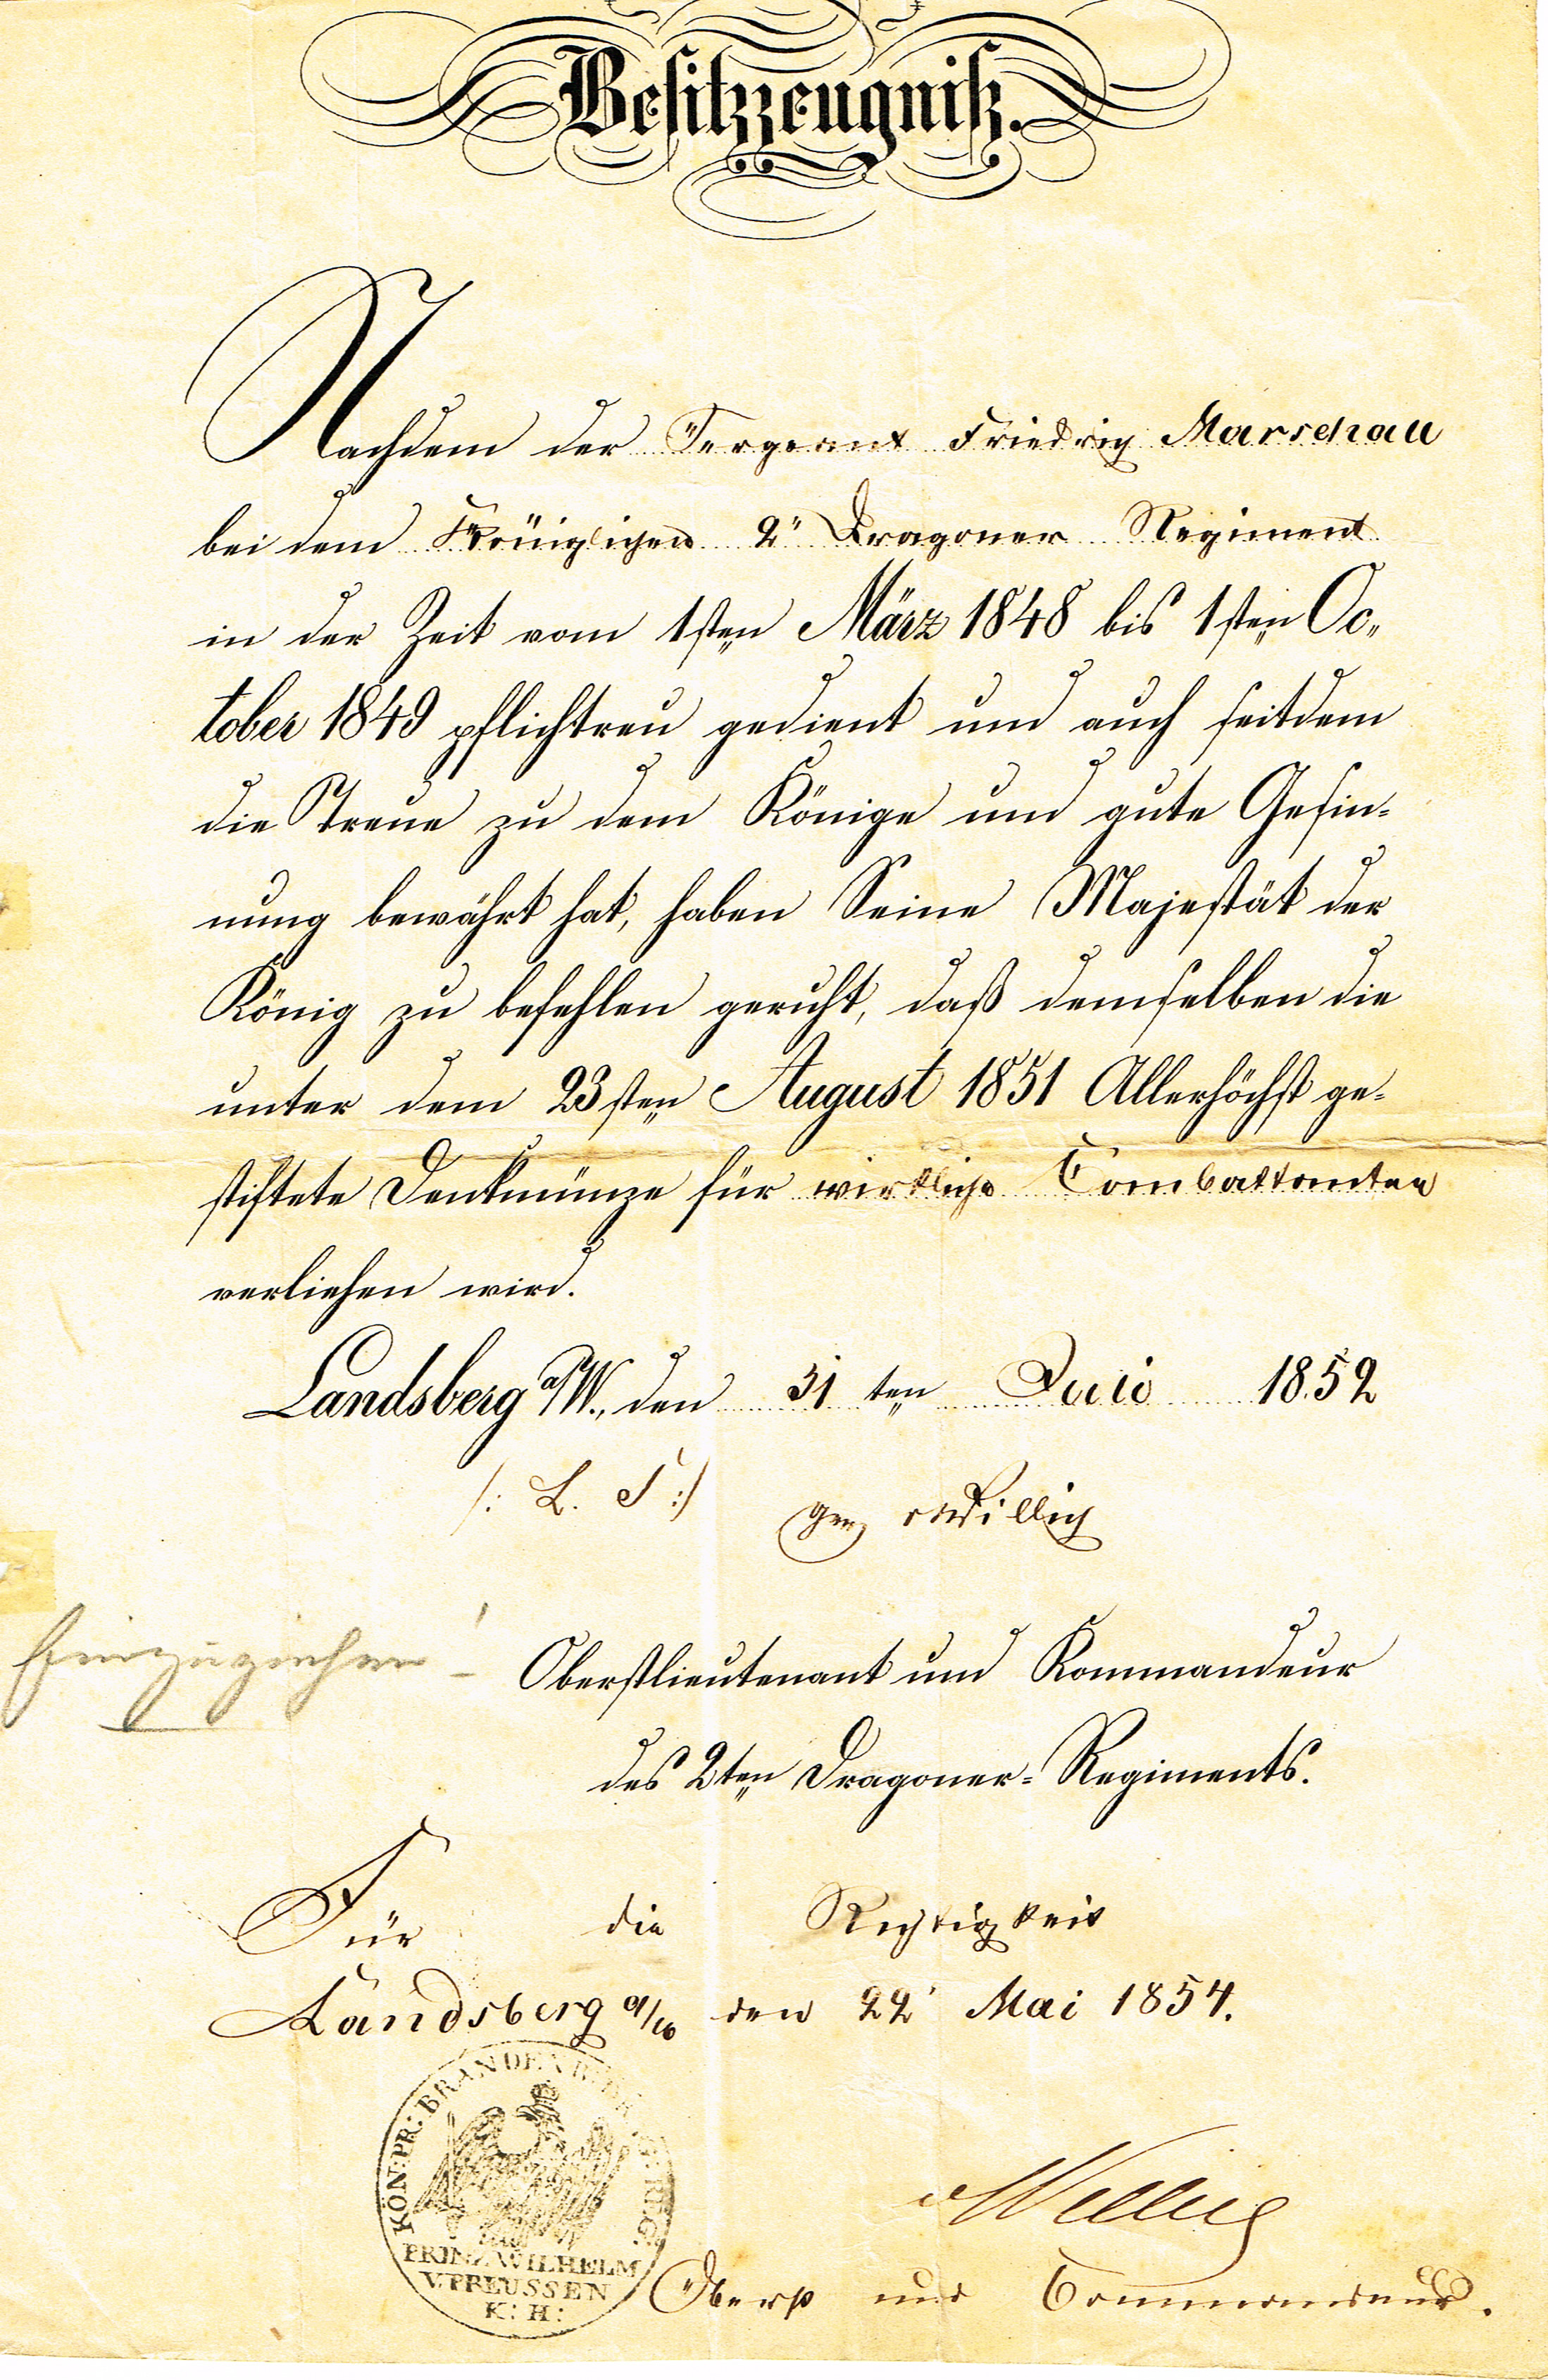 Besitzzeugniß.
Nachdem der Sergeant Friedrich Marschall
bei dem Königlichen 2" Dragoner Regiment
in der Zeit vom 1sten März 1848 bis 1sten Oc„
tober 1849 pflichtreu gedient und auch seitdem
die Treue zu dem Könige und gute Gesin=
nung bewährt hat, haben Seine Majestät der
König zu befehlen geruht, daß demselben die
unter dem 23sten August 1851 Allerhöchst ge=
stiftete Denkmünze für wirkliche Combattanten
verliehen wird.
Landsberg a/W., den 31 ten 1852
/: L. S :/ gez v Willich
Einzuziehen!
Oberstlieutenant und Kommandeur
des 2ten Dragoner=Regiments.
Für die Richtigkeit
Landsberg a/w den 22' Mai 1854.
KÖN: PR: BRANDENB: REG:
PRINZ WILHELM
V. PREUSSEN
K: H:
vWillich
Oberst und Commandeur.